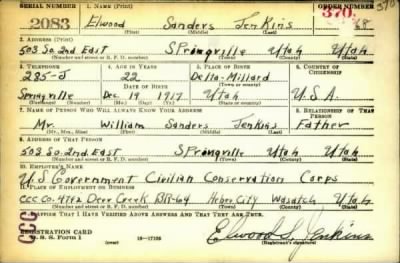 SERIAL NUMBER 1. NAME (Print) ORDER NUMBER
2083 Elwood Sanders Jenkins 370.
(First) (Middle) (Last)
2. ADDRESS (Print)
503 So. 2nd East Springville Utah Utah
(Number and street or R. F. D. number) (Town) (County) (State)
3. TELEPHONE 4. AGE IN YEARS 5. PLACE OF BIRTH 6. COUNTRY OF CITIZENSHIP
285-J 22 Delta-Millard
DATE OF BIRTH (Town or county)
Springville Dec 19 1917 Utah U.S.A.
(Exchange) (Number) (Mo.) (Day) (Yr.) (State or country)
7. NAME OF PERSON WHO WILL ALWAYS KNOW YOUR ADDRESS 8. RELATIONSHIP OF THAT PERSON
Mr. William Sanders Jenkins Father
(Mr., Mrs., Miss) (First) (Middle) (Last)
9. ADDRESS OF THAT PERSON
503 So. 2nd East Springville Utah Utah
(Number and street or R. F. D. number) (Town) (County) (State)
10. EMPLOYER'S NAME
U.S Government Civilian Conservation Corps
11. PLACE OF EMPLOYMENT OR BUSINESS
CCC Co. 4792 Deer Creek BR-64 Heber City Wasatch Utah
(Number and street or R. F. D. number) (Town) (County) (State)
CCC
I AFFIRM THAT I HAVE VERIFIED ABOVE ANSWERS AND THAT THEY ARE TRUE.
REGISTRATION CARD
D. S. S. FORM 1 Elwood S. Jenkins
(Registrant's signature)